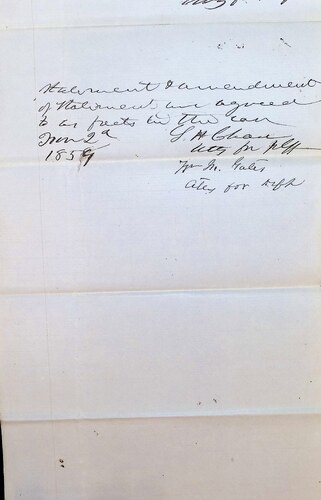 Statement & amendment
of Statement are agreed
to as facts in the case
Nov 2d
1859
Atty for Plff
Wm M. Gates
Atty for Deft